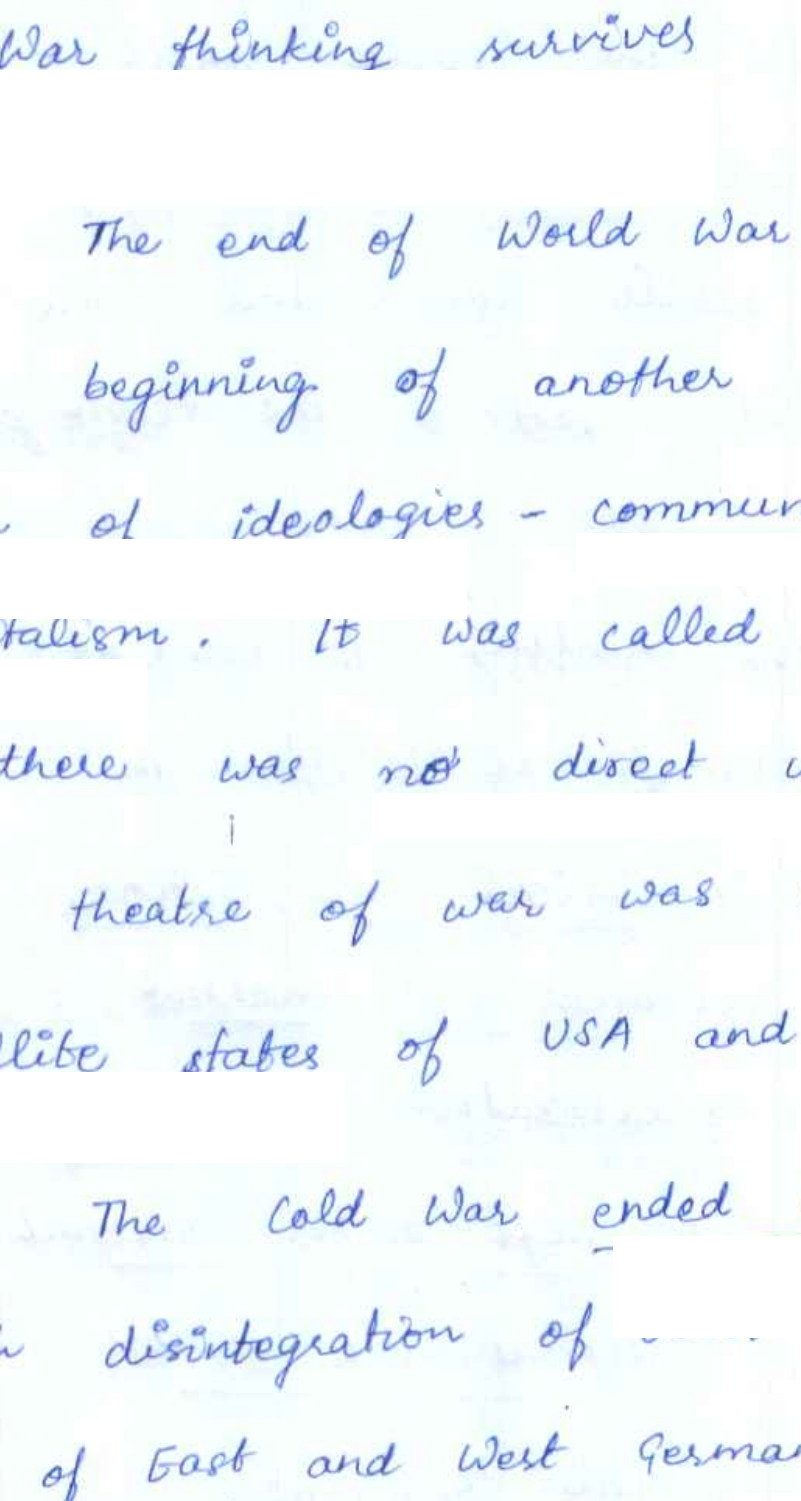 War thinking survives
The end of World War
beginning of another
of ideologies - commun
talism. It was called
there was no direct
theatre of war was
llite states of USA and
The Cold War ended
disintegration of
of East and West German